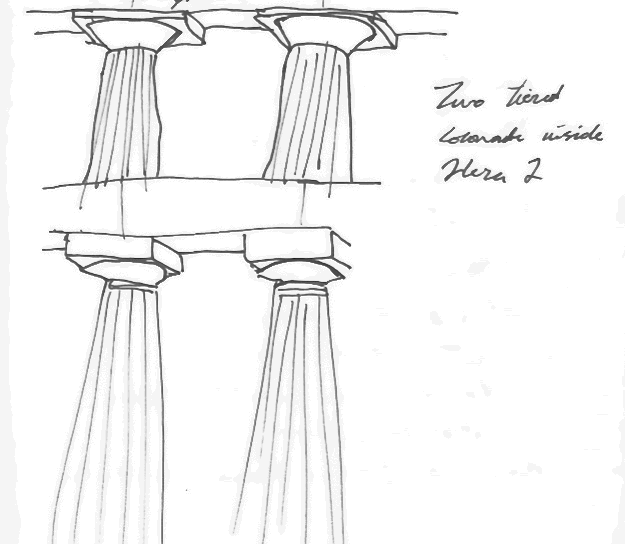 Two tiered
Colonade inside
Hera 2